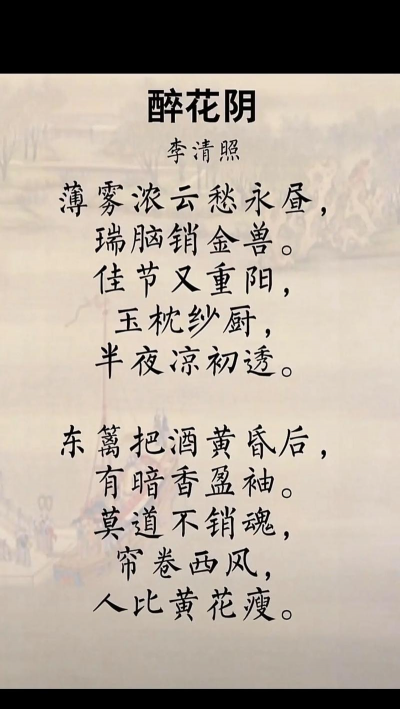 醉花阴
李清照
薄雾浓云愁永昼，
瑞脑销金兽。
佳节又重阳，
玉枕纱厨，
半夜凉初透。
东篱把酒黄昏后，
有暗香盈袖。
莫道不销魂，
帘卷西风，
人比黄花瘦。